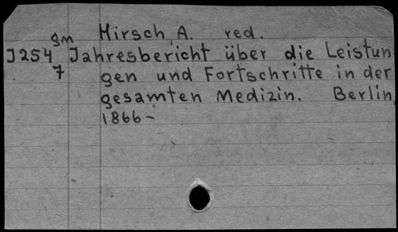 gm Hirsch A. red.
J254 Jahresbericht über die Leistun
7 gen und Fortschritte in der
gesamten Medizin. Berlin,
1866-